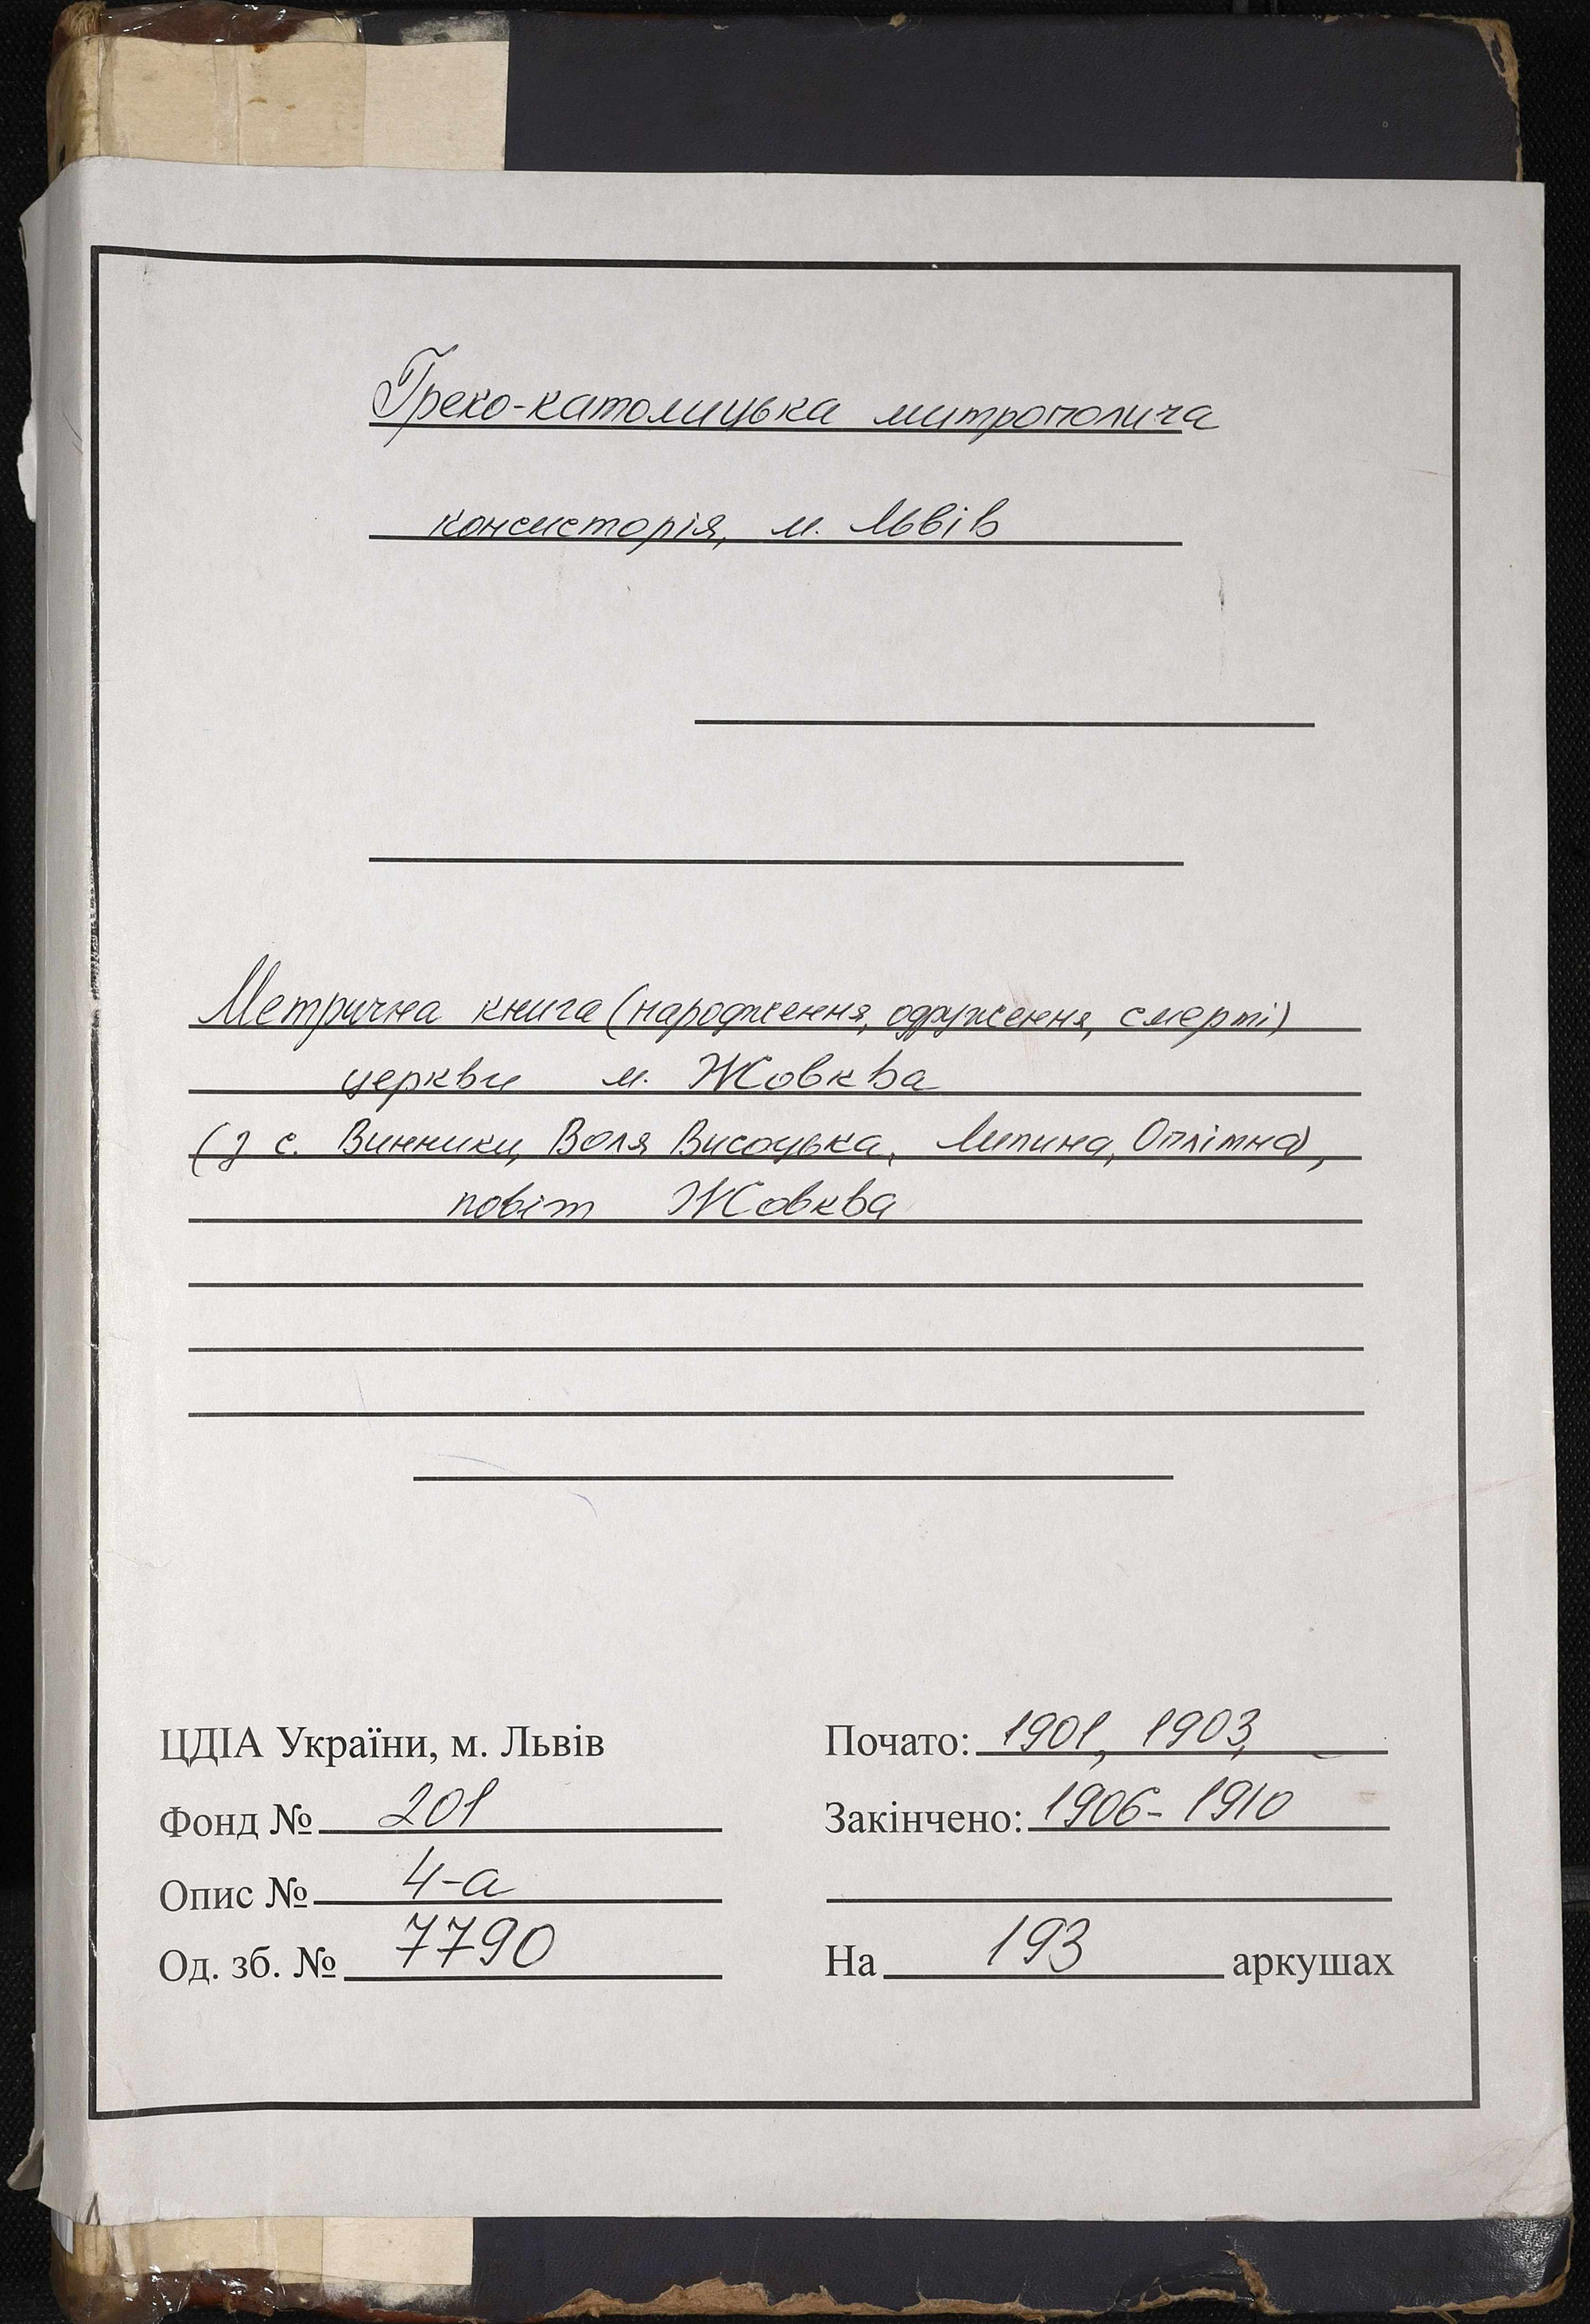 Греко-католицька митрополича
консисторія, м. Львів
Метрична книга (народження, одруження, смерті)
церкви м. Жовква
(з с. Винники, Воля Висоцька, Липина, Оплітна),
повіт Жовква
ЦДІА України, м. Львів
Фонд № 201
Опис № 4-а
Од. зб. № 7790
Почато: 1901, 1903,
Закінчено: 1906-1910
На 193 аркушах